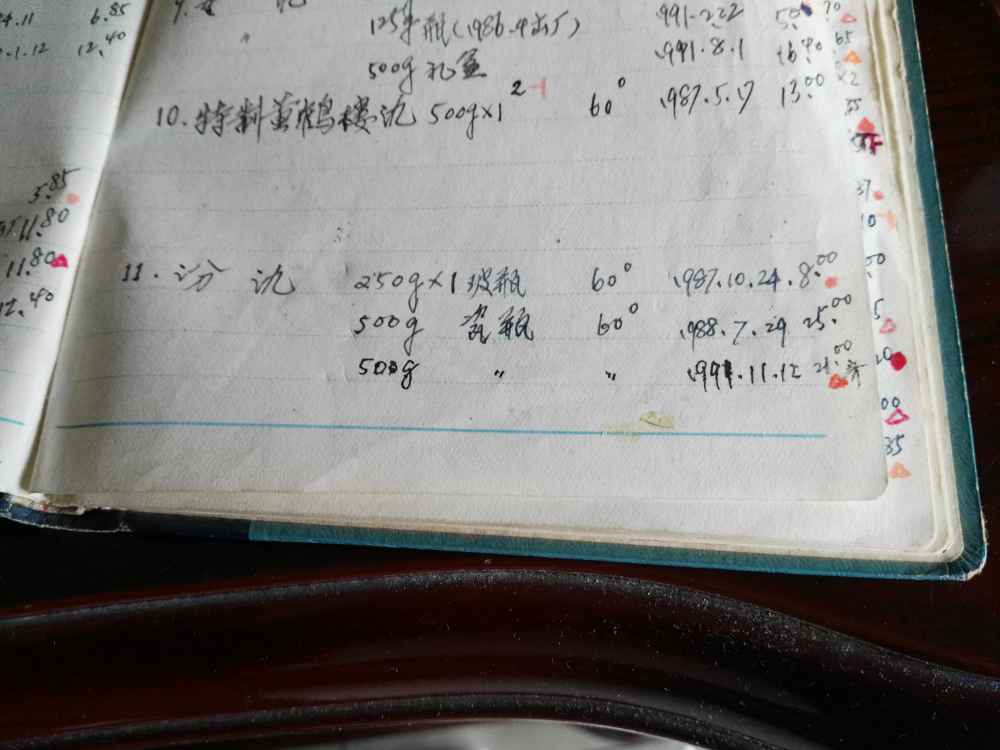 4.11 6.85
.1.12 12.40
5.85
11.80
11.80
12.40
9.
125 瓶(1986.4出厂) 1991.2.22
500g 礼盒 1991.8.1 16.40
10. 特制黄鹤楼氿 500g×1 2 60° 1987.5.17 13.00
11. 汾氿 250g×1 玻瓶 60° 1987.10.24. 8.00
500g 瓷瓶 60° 1988.7.29 25.00
500g 〃 〃 1991.11.12 21.00
70
65
×2
35
37
10
00
5
20
00
35